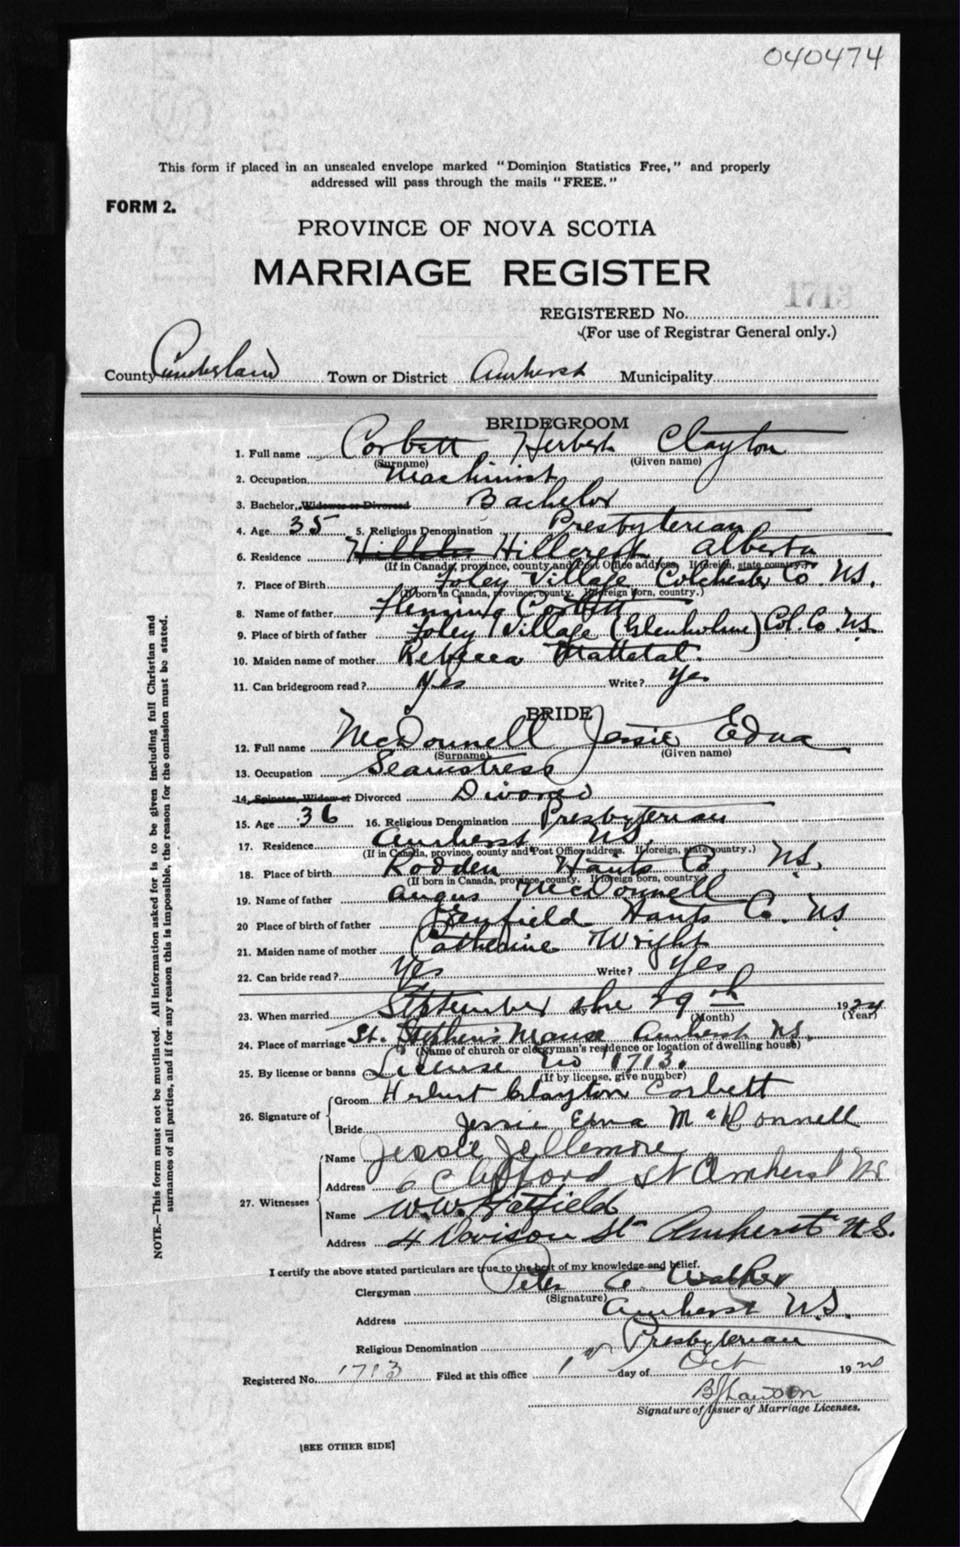 040474
This form if placed in an unsealed envelope marked "Dominion Statistics Free," and properly
addressed will pass through the mails "FREE."
FORM 2.
PROVINCE OF NOVA SCOTIA
MARRIAGE REGISTER
1713
REGISTERED No.
(For use of Registrar General only.)
County Cumberland Town or District Amherst Municipality
BRIDEGROOM
1. Full name Corbett Herbert Clayton
(Surname) (Given name)
2. Occupation Machinist
3. Bachelor, Widower or Divorced Bachelor
4. Age 35 5. Religious Denomination Presbyterian
6. Residence Hillcrest, Alberta
(If in Canada, province, county and Post Office address. If foreign, state country.)
7. Place of Birth Foley Village, Colchester Co. N.S.
(If born in Canada, province, county. If foreign born, country.)
8. Name of father Fleming Corbett
9. Place of birth of father Foley Village (Glenholme) Col. Co. N.S.
10. Maiden name of mother Rebecca Mattatal.
11. Can bridegroom read? Yes Write? Yes
BRIDE
12. Full name McDonnell Jessie Edna
(Surname) (Given name)
13. Occupation Seamstress
14. Spinster, Widow or Divorced Divorced
15. Age 36 16. Religious Denomination Presbyterian
17. Residence Amherst N.S.
(If in Canada, province, county and Post Office address. If foreign, state country.)
18. Place of birth Rodden Hants Co. N.S.
(If born in Canada, province, county. If foreign born, country.)
19. Name of father Angus McDonnell
20 Place of birth of father Hants Co. N.S
21. Maiden name of mother Catherine Wright
22. Can bride read? Yes Write? Yes
23. When married September the 29th 1924
(Month) (Year)
24. Place of marriage St. Stephen's Manse Amherst N.S.
(Name of church or clergyman's residence or location of dwelling house)
25. By license or banns License No 1713.
(If by license, give number)
26. Signature of
Groom Herbert Clayton Corbett
Bride Jessie Edna McDonnell
27. Witnesses
Name Jessie Jollemore
Address 6 Clifford St Amherst N.S
Name W.W. Hatfield
Address 4 Davison St Amherst N.S.
I certify the above stated particulars are true to the best of my knowledge and belief.
Clergyman Peter Walker
(Signature)
Address Amherst N.S.
Religious Denomination Presbyterian
Registered No. 1713 Filed at this office 1st day of Oct 192
Lawson
Signature of Issuer of Marriage Licenses.
[SEE OTHER SIDE]
NOTE.—This form must not be mutilated. All information asked for is to be given including full Christian and
surnames of all parties, and if for any reason this is impossible, the reason for the omission must be stated.